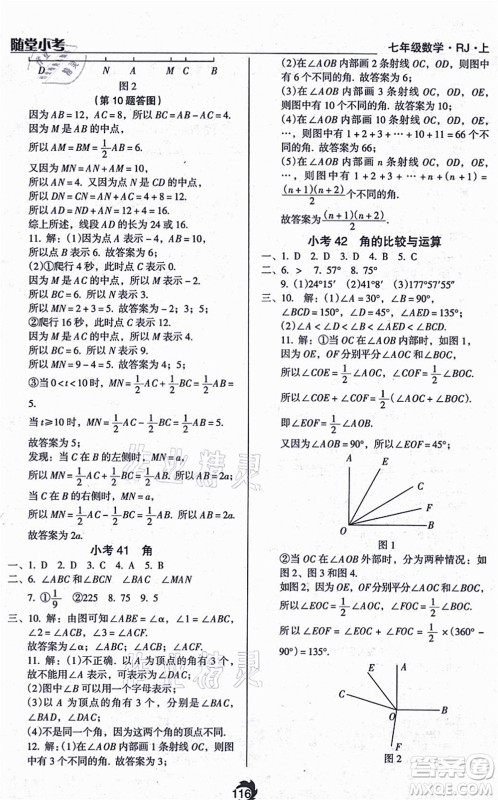 随堂小考
七年级数学·RJ·上
D N A M C B
图 2
(第 10 题答图)
因为 AB=12，AC=8，所以 BC=AB-AC=4.
因为 M 是 AB 的中点，
所以 AM=BM=1/2AB=6.
又因为 MN=10，
所以 AN=MN-AM=4.
因为 N 是 AD 的中点，
所以 DN=AN=AN+AC=4+8=12.
所以 AD=ND+AN=12+4=16.
综上所述，线段 AD 的长为 24 或 16.
11. 解：(1)因为点 A 表示-4，
所以点 B 表示 6. 故答案为 6；
(2)①爬行 4 秒，点 C 表示 0.
所以 AC=4，BC=6.
因为 M 是 AC 的中点，N 是 BC 的中点，
所以 MN=2+3=5. 故答案为 5；
②爬行 16 秒，点 C 表示 12.
所以 AC=16，BC=6.
所以 MN=9-4=5. 故答案为 5；
③当 0<t<10 时，MN=1/2AC+1/2BC=1/2AB=
5.
当 t≥10 时，MN=1/2AC-1/2BC=1/2AB=5.
故答案为 5；
发现：当 C 在 A 的左侧时，MN=a，
所以 MN=1/2BC-1/2AC=1/2AB=a. 所以 AB=2a.
当 C 在 B 的右侧时，MN=a，
所以 MN=1/2AC-1/2BC=1/2AB=a. 所以 AB=2a.
故答案为 2a.
小考 41 角
一、1. D 2. D 3. A 4. A 5. B
二、6. ∠ABC 和∠BCN ∠BAC ∠MAN
7. ①1/9 ②225 8. 75 9. 5
三、10. 解：由图可知∠ABE=∠α，∠1=∠ABC，
故答案为∠α；∠ABC；∠ACB；∠ACF.
11. 解：(1)不正确. 以 A 为顶点的角有 3 个，
故不能用∠A 表示，可表示为∠DAC；
(2)∠B 可以用一个字母表示；
(3)以 A 为顶点的角有 3 个，为∠BAD，∠BAC，
∠DAC；
(4)不是同一个角，两个角的顶点不同.
12. 解：(1)在∠AOB 内部画 1 条射线 OC，则
图中有 3 个不同的角. 故答案为 3；
(2)在∠AOB 内部画 2 条射线 OC，OD，则图中
有 6 个不同的角. 故答案为 6；
(3)在∠AOB 内部画 3 条射线 OC，OD，OE，则
图中有 10 个不同的角. 故答案为 10；
(4)在∠AOB 内部画 10 条射线 OC，OD，OE，
…，则图中有 1+2+3+…+10+11=66 个不
同的角. 故答案为 66；
(5)在∠AOB 内部画 n 条射线 OC，OD，OE，
…，则图中有 1+2+3+…+n+(n+1)=
(n+1)(n+2)/2个不同的角.
故答案为(n+1)(n+2)/2.
小考 42 角的比较与运算
一、1. D 2. D 3. D 4. B 5. C
二、6. > 7. 57° 8. 75°
9. (1)24°15′ (2)41°8′ (3)177°57′55″
三、10. 解：因为∠A=60°，∠B=90°，
∠BCD=150°，∠D=45°，∠AED=90°，
所以∠D<∠A<∠B=∠AED<∠BCD.
11. 解：①当 OC 在∠AOB 内部时，如图 1，
所以∠COE=1/2∠AOC，∠COF=1/2∠BOC.
所以∠EOF=∠COE+∠COF
=1/2∠AOC+1/2∠BOC=1/2∠AOB.
又因为∠AOB=90°，所以∠EOF=45°；
A E C F O B
图 1
②当 OC 在∠AOB 外部时，分两种情况：如
图 2、图 3 和图 4.
如图 2，因为 OE，OF 分别平分∠AOC，∠BOC，
所以∠EOC=1/2∠AOC，∠FOC=1/2∠BOC.
所以∠EOF=∠EOC+∠FOC=1/2×(360°-
90°)=135°；
A E C O B F
图 2
116
作业精灵